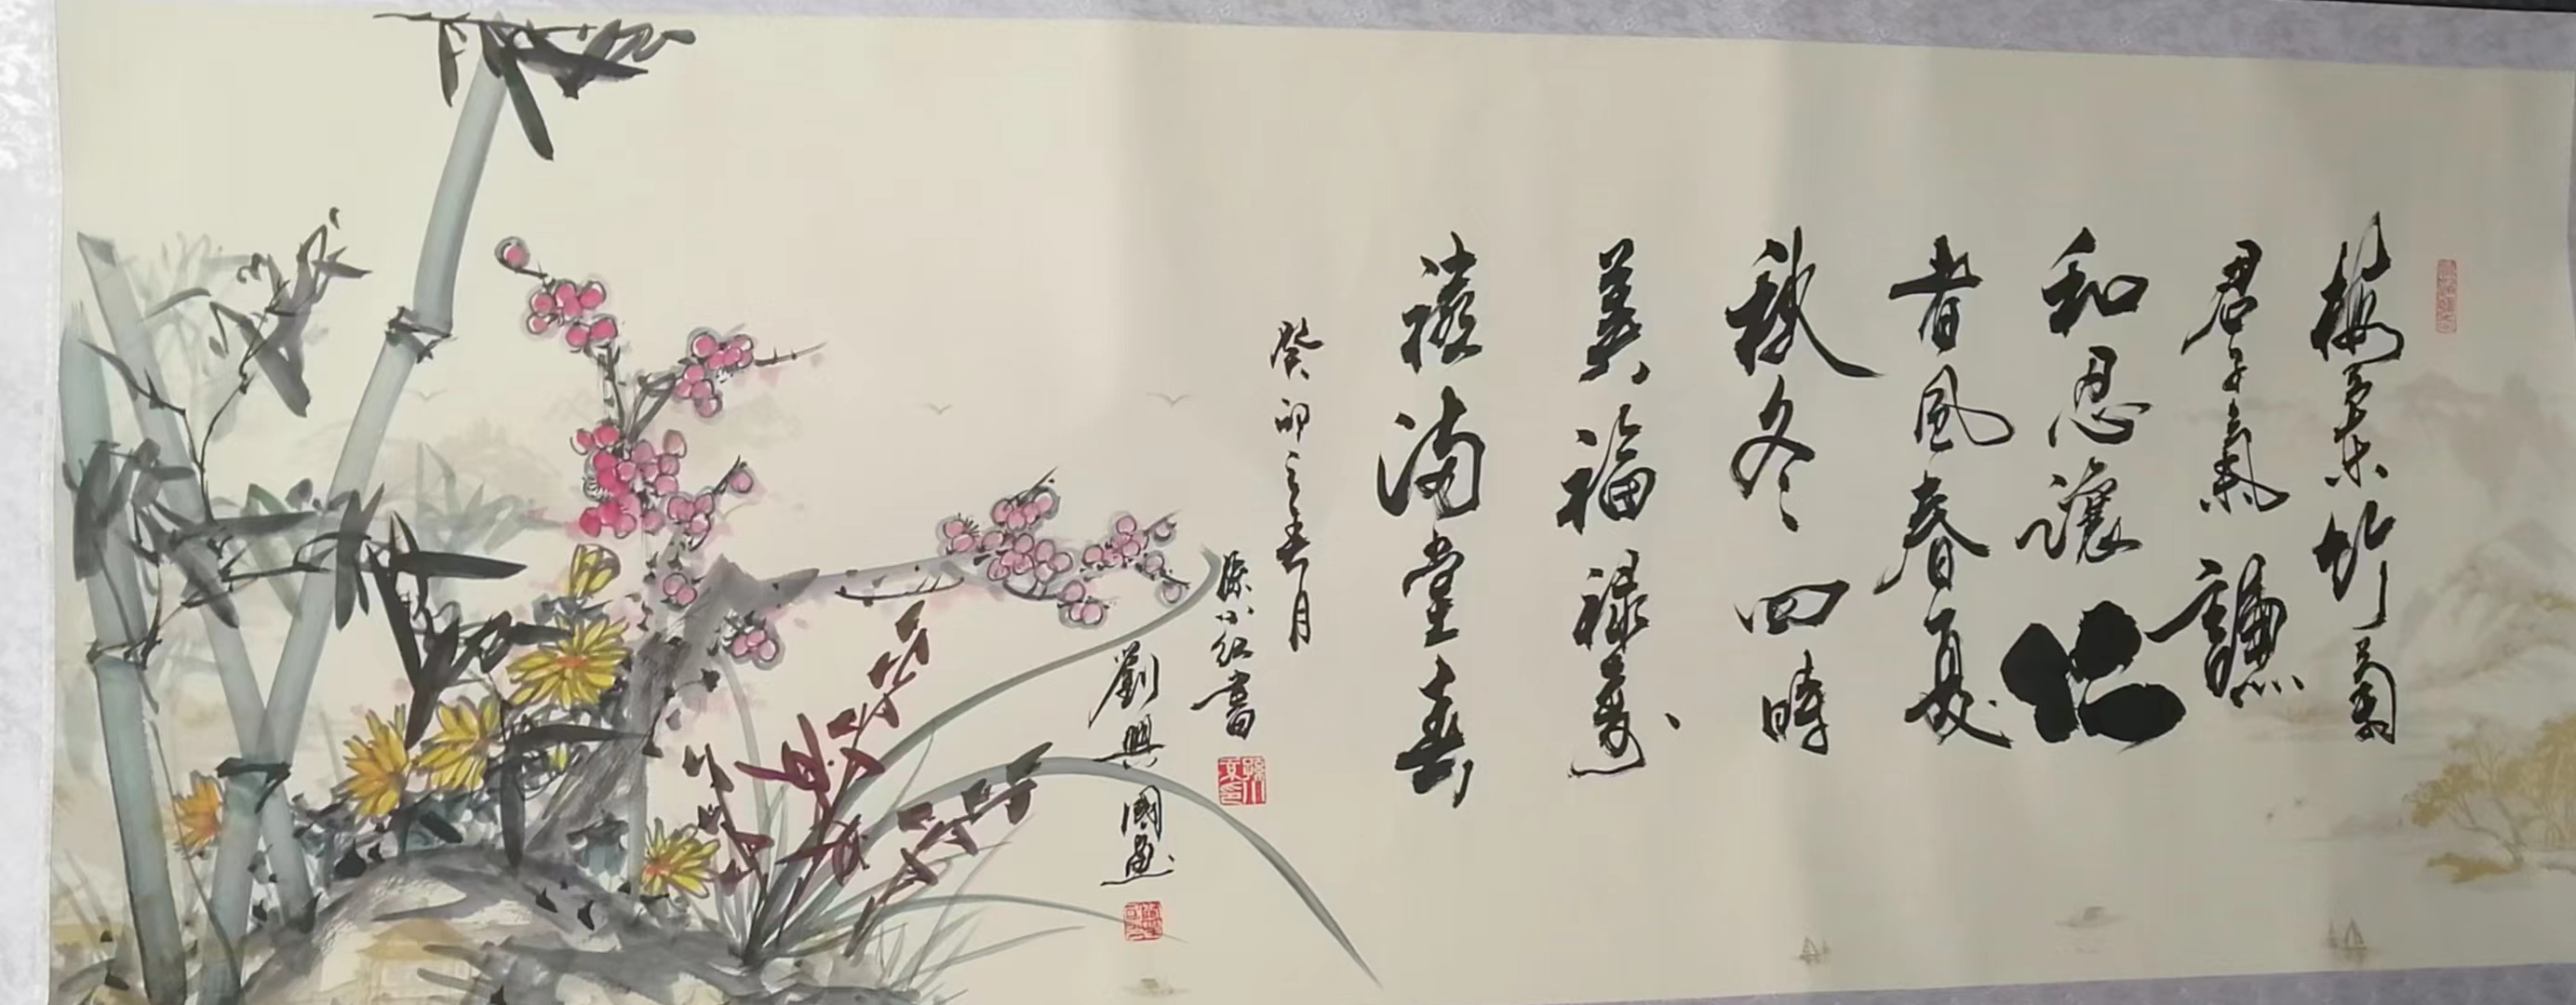 梅蘭竹菊
君子氣謙
和忍讓仁
者風春夏
秋冬四時
美福禄壽
禧滿堂春
癸卯之春月
孫小红書
劉興國画